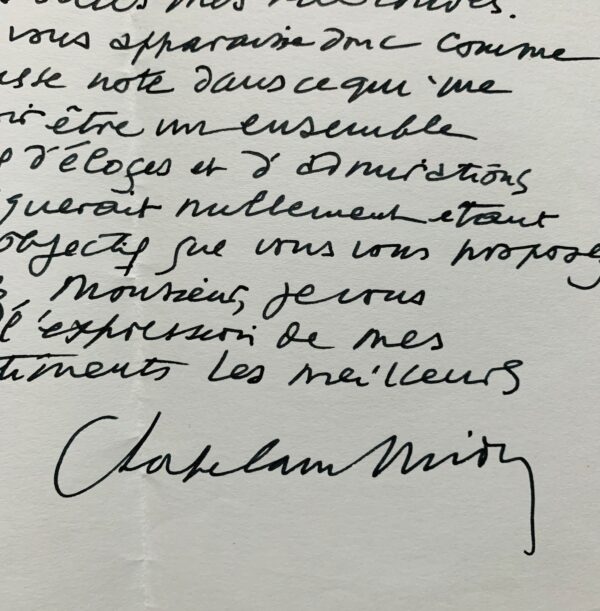 vous apparaisse donc comme
usse note dans ce qui me
oir être un ensemble
d'éloges et d'admirations
querait nullement étant
objectif que vous vous proposez
Monsieur, je vous
l'expression de mes
timents les meilleurs
Chapelain Midy